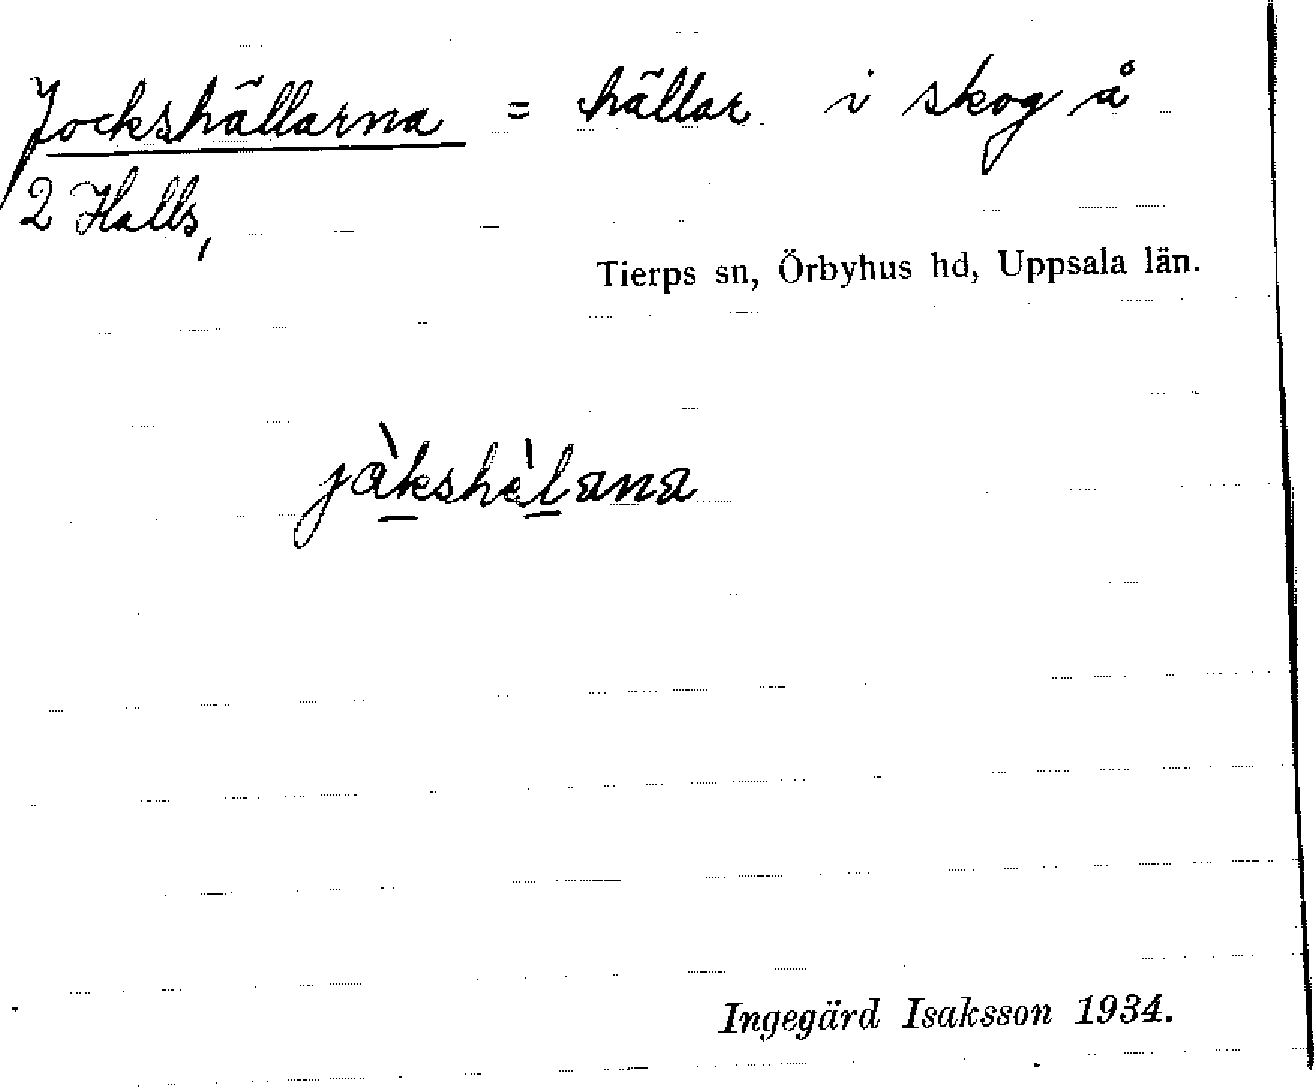 Jockshällarna = hällar i skog å
2 Halls,
Tierps sn, Örbyhus hd, Uppsala län.
jàkshèlana
Ingegärd Isaksson 1934.